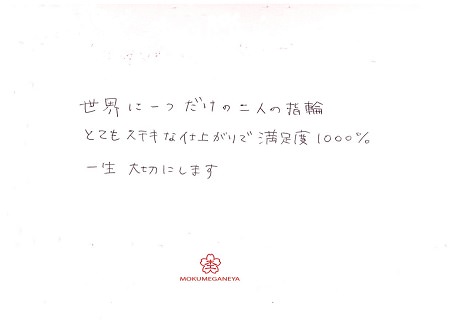 世界に一つだけの二人の指輪
とてもステキな仕上がりで満足度1000%
一生 大切にします
MOKUMEGANEYA